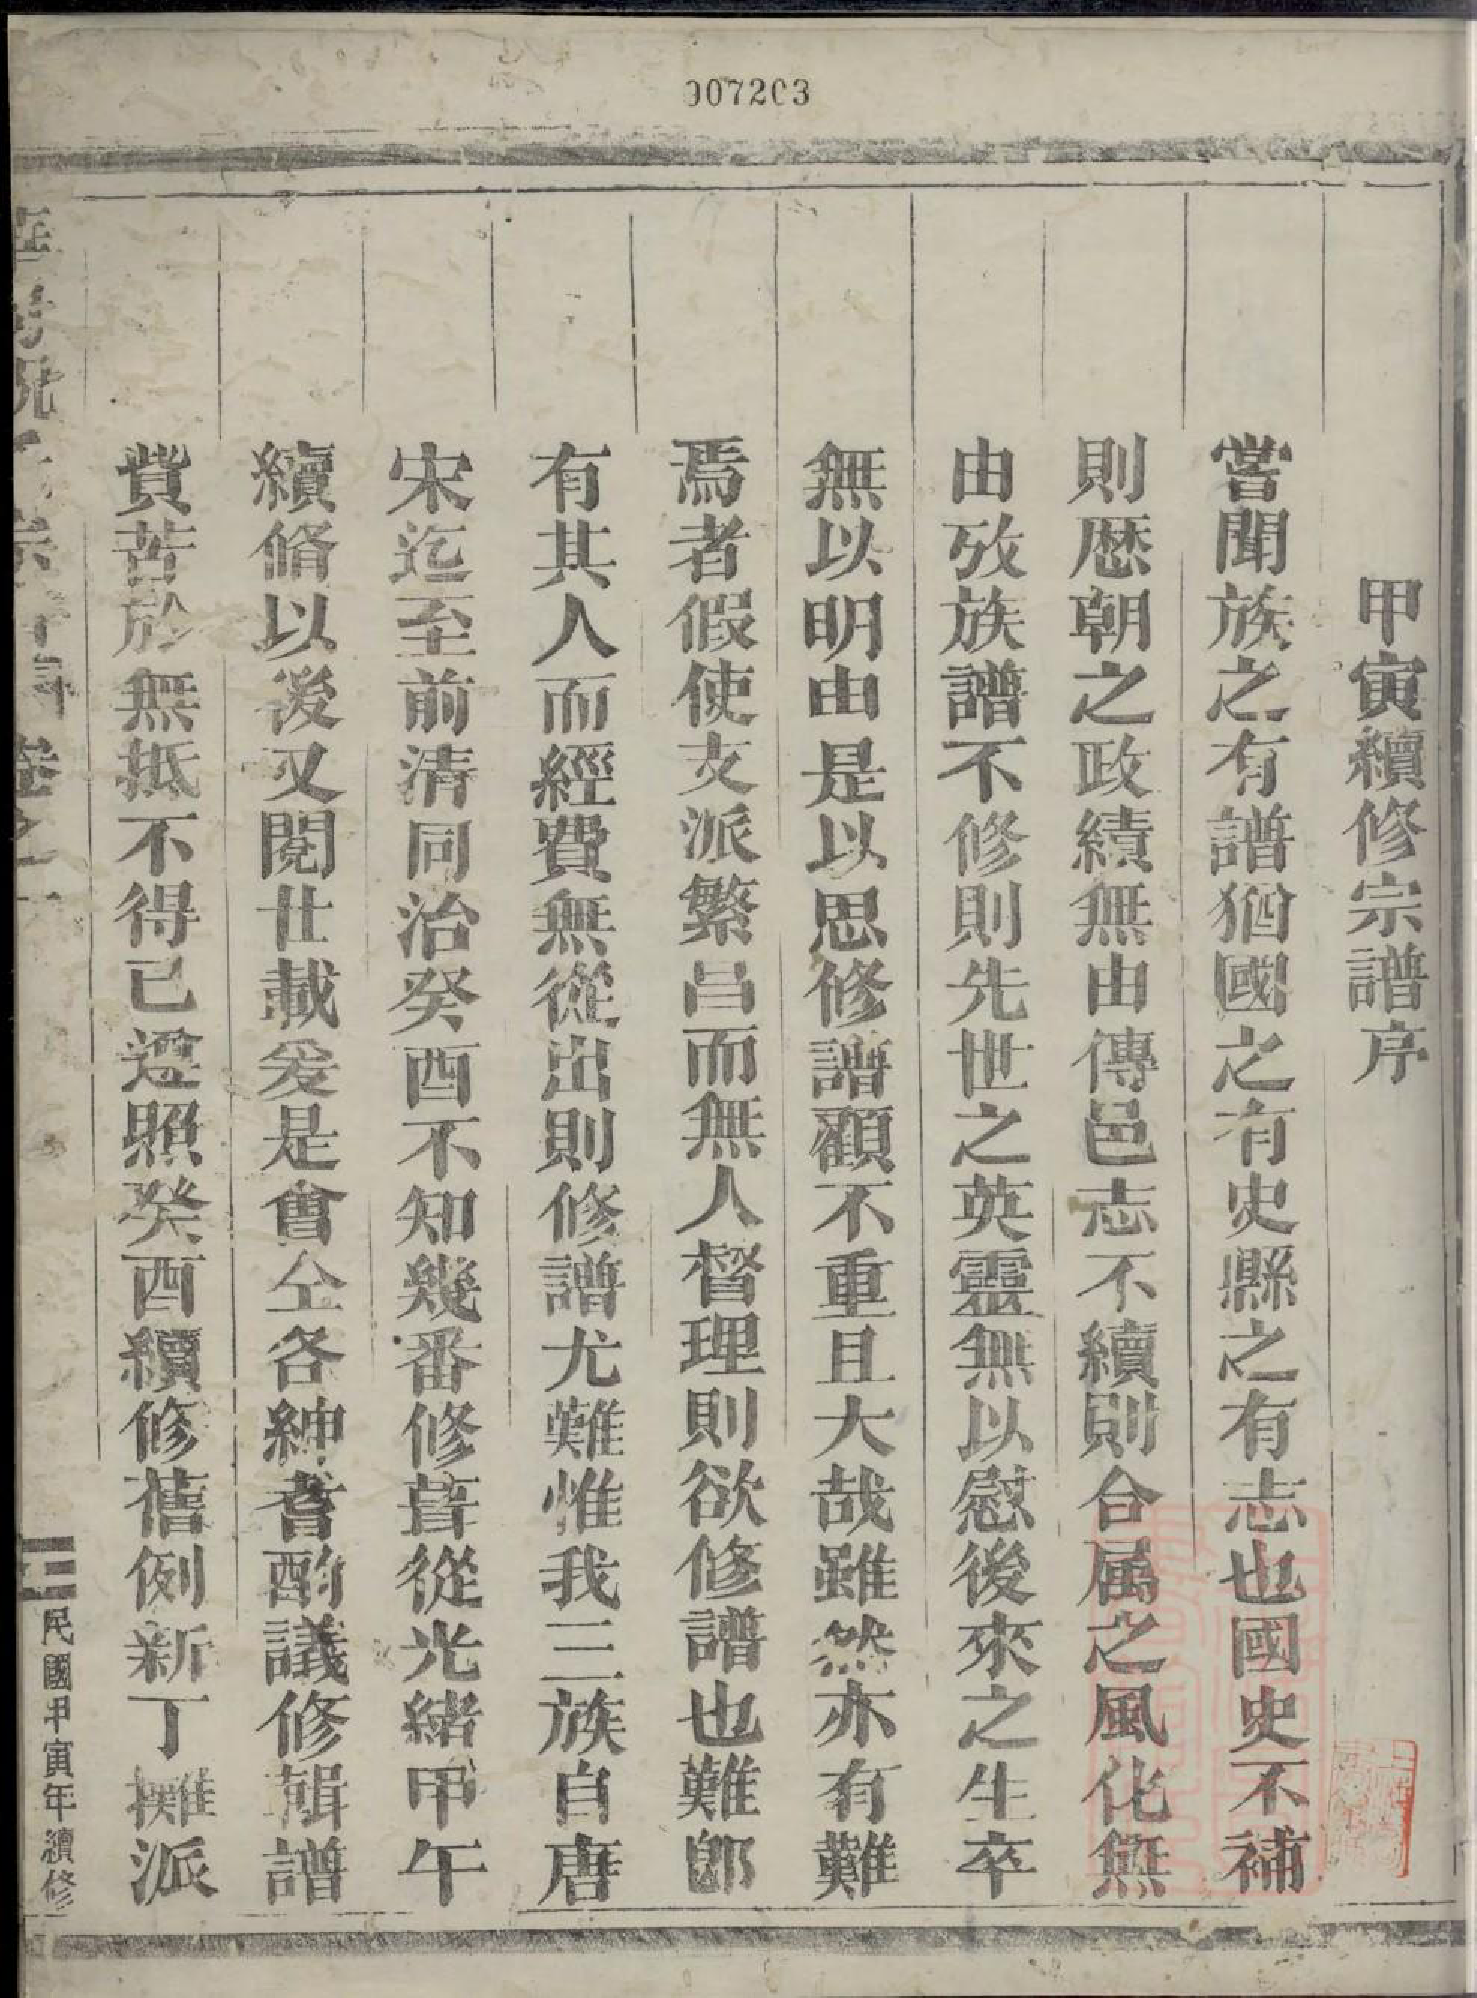 007203
甲寅續修宗譜序
嘗聞族之有譜猶國之有史縣之有志也國史不補
則歴朝之政績無由傳邑志不續則合属之風化無
由攷族譜不修則先世之英靈無以慰後來之生卒
無以明由是以思修譜顧不重且大哉雖然亦有難
焉者假使支派繁昌而無人督理則欲修譜也難郎
有其人而經費無從出則修譜尤難惟我三族自唐
宋迄至前清同治癸酉不知幾番修葺從光緒甲午
續脩以後又閱廿載爰是會仝各紳耆酌議修輯譜
費苦於無抵不得已遵照癸酉續修舊例新丁攤派
卷之一
民國甲寅年續修